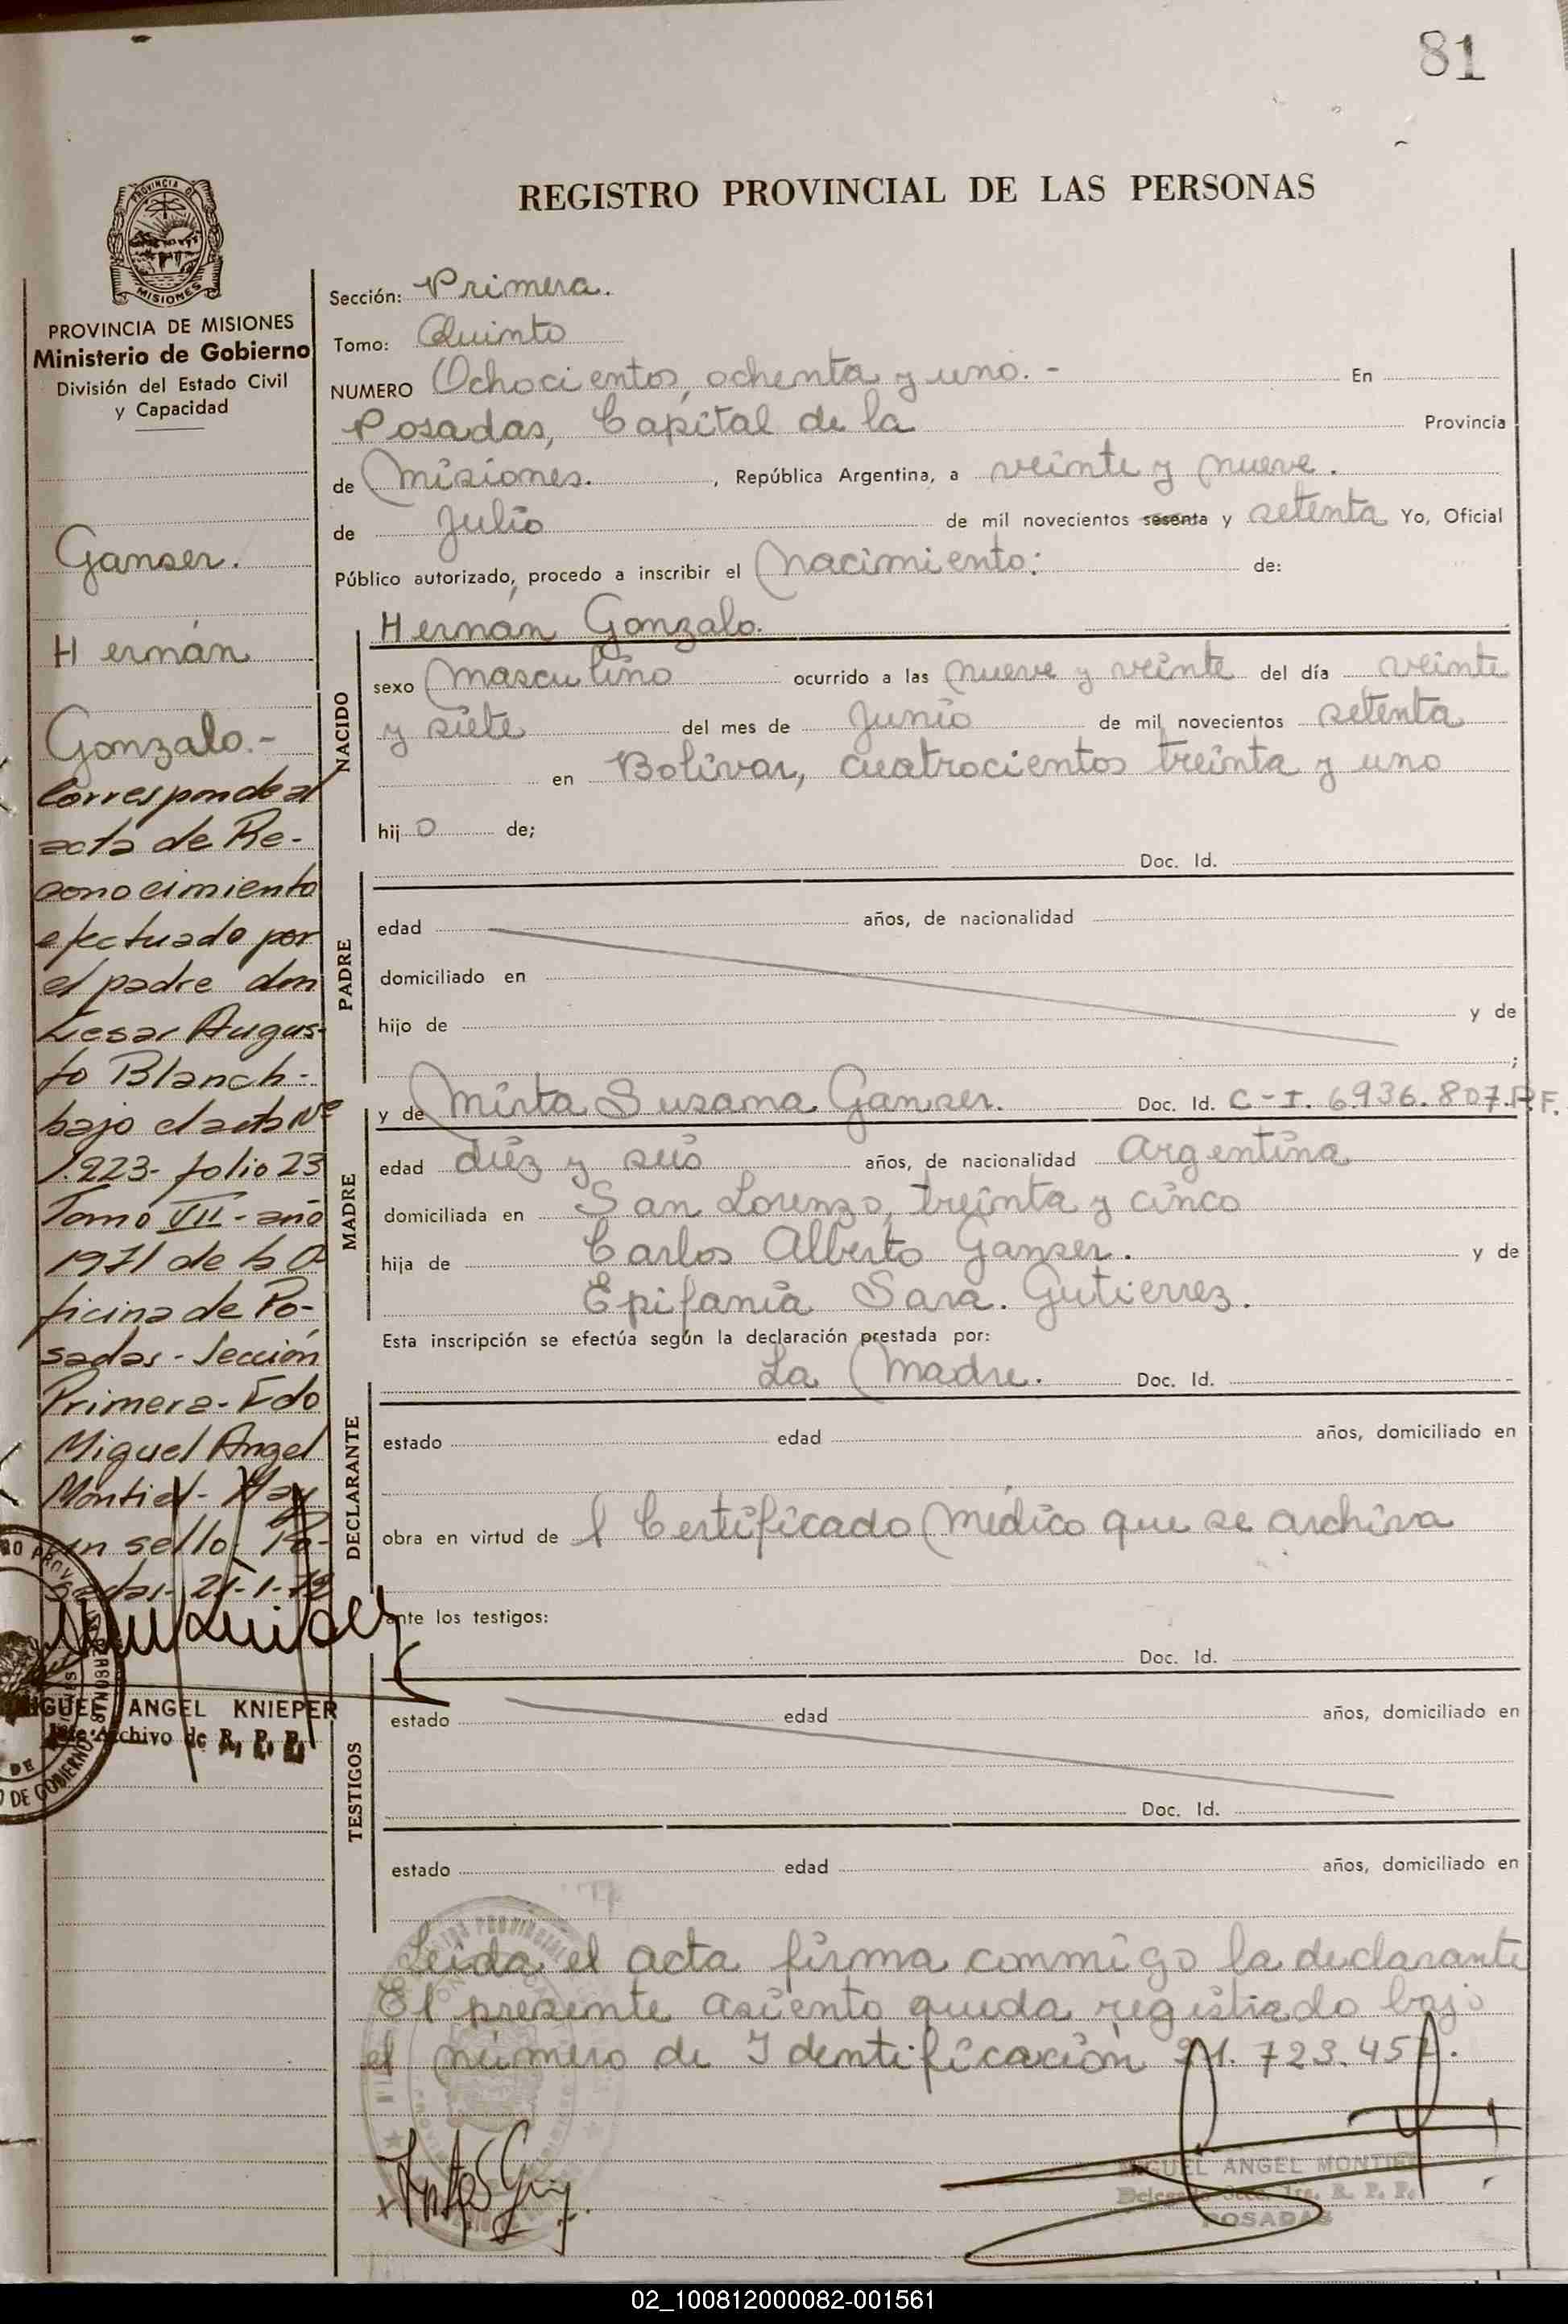 81
REGISTRO PROVINCIAL DE LAS PERSONAS
PROVINCIA DE
MISIONES
PROVINCIA DE MISIONES
Ministerio de Gobierno
División del Estado Civil
y Capacidad
Ganser.
Hernán
Gonzalo.-
Corresponde al
acta de Re-
conocimiento
efectuado por
el padre don
Cesar Augus-
to Blanch-
bajo el acta Nº
1.223- folio 23
Tomo VII - año
1971 de la O-
ficina de Po-
sadas - Sección
Primera - Fdo
Miguel Angel
Montiel - Hay
un sello. Po-
sadas- 21-1-
MIGUEL ANGEL KNIEPER
Jefe Archivo de R. P. P.
Sección: Primera.
Tomo: Quinto
NUMERO Ochocientos, ochenta y uno. - En
Posadas, Capital de la Provincia
de Misiones. , República Argentina, a veinte y nueve.
de Julio de mil novecientos sesenta y setenta Yo, Oficial
Público autorizado, procedo a inscribir el nacimiento: de:
Hernán Gonzalo.
NACIDO
sexo masculino ocurrido a las nueve y veinte del día veinte
y siete del mes de Junio de mil novecientos setenta
en Bolívar, cuatrocientos treinta y uno
hij o de;
PADRE
Doc. Id.
edad años, de nacionalidad
domiciliado en
hijo de y de
;
MADRE
y de Mirta Susana Ganser. Doc. Id. C-I. 6.936.807.P.F.
edad diez y seis años, de nacionalidad Argentina
domiciliada en San Lorenzo, treinta y cinco
hija de Carlos Alberto Ganser. y de
Epifania Sara. Gutierrez.
Esta inscripción se efectúa según la declaración prestada por:
DECLARANTE
La Madre. Doc. Id.
estado edad años, domiciliado en
obra en virtud de l Certificado Médico que se archiva
ante los testigos:
TESTIGOS
Doc. Id.
estado edad años, domiciliado en
Doc. Id.
estado edad años, domiciliado en
Leida el acta firma conmigo la declarante
El presente asiento queda registrado bajo
el número de Identificación 21.723.457.
MIGUEL ANGEL MONTIEL
Delegado Secc. 1ra. R. P. P.
POSADAS
02_100812000082-001561